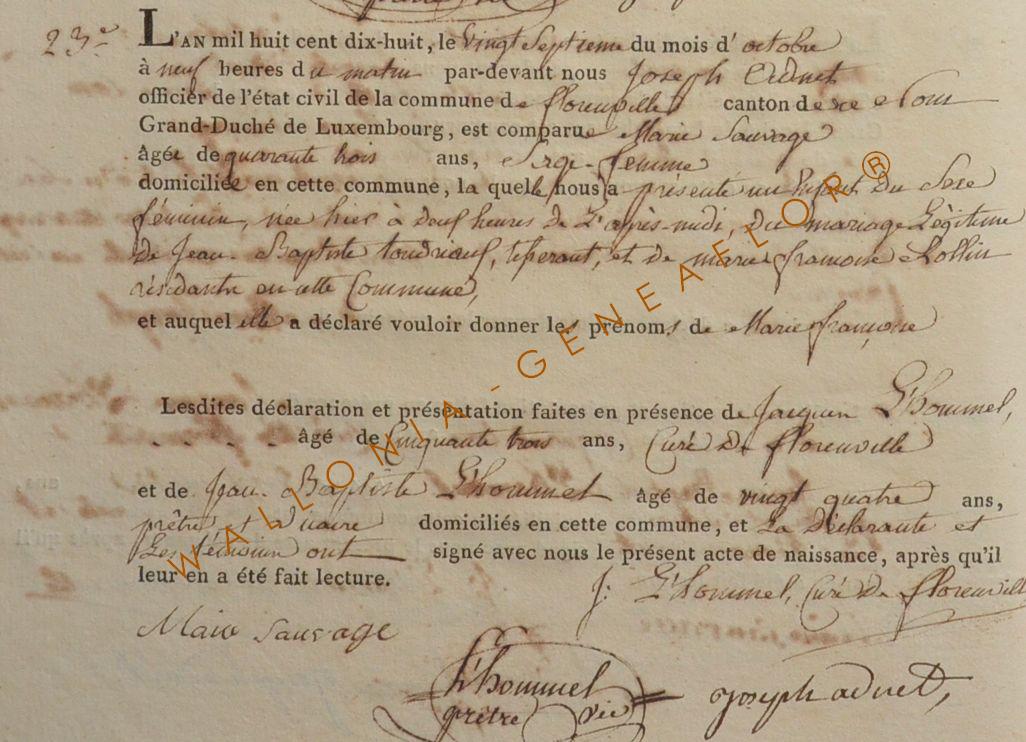 23e
L'AN mil huit cent dix-huit, le vingt Septieme du mois d'octobre
à neuf heures du matin par-devant nous Joseph Adnet
officier de l'état civil de la commune de florenville canton de
Grand-Duché de Luxembourg, est comparue Marie Sauvage
âgée de quarante trois ans, Sage-femme
domiciliée en cette commune, la quelle nous a présenté un Enfant du Sexe
féminin, née hier à deux heures de L'après-midi, du mariage Légitime
de Jean-Baptiste et de marie françoise
résidants en cette Commune,
et auquel elle a déclaré vouloir donner les prénoms de Marie françoise
Lesdites déclaration et présentation faites en présence de Jacques L'hommel,
âgé de Cinquante trois ans, Curé de florenville
et de Jean-Baptiste L'hommel âgé de vingt quatre ans,
prêtre et vicaire domiciliés en cette commune, et La Déclarante et
Les témoins ont signé avec nous le présent acte de naissance, après qu'il
leur en a été fait lecture.
J: L'hommel, Curé de florenville
Marie Sauvage
L'hommel
prêtre vic
joseph adnet,
WALLONIA-GENEAFLOR®